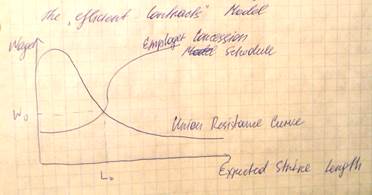 The "efficient Contracts" Model
Wages
Employer Concession
Schedule
W₀
Union Resistance Curve
L₀
Expected Strike Length